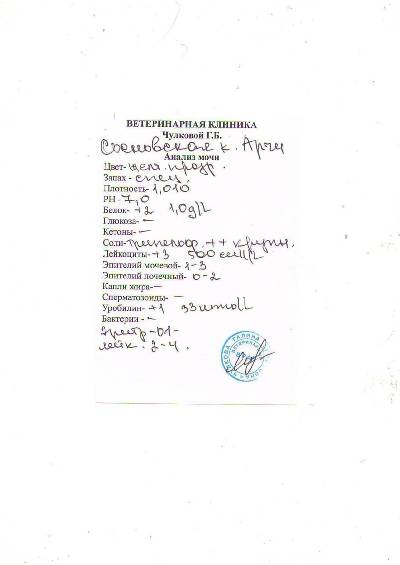 ВЕТЕРИНАРНАЯ КЛИНИКА
Чулковой Г.Б.
Сосновская к. Арчи
Анализ мочи
Цвет- жел. прозр.
Запах - спец.
Плотность- 1,010
PH - 7,0
Белок- +2 1,0g/L
Глюкоза- –
Кетоны- –
Соли- трипельфосф. ++ крупн.
Лейкоциты- +3 500 cell/L
Эпителий мочевой- 1-3
Эпителий почечный- 0-2
Капли жира- –
Сперматозоиды- –
Уробилин- +1 33 umol/L
Бактерии - –
Эритр -01-
лейк. 2-4.
ГАЛИНА